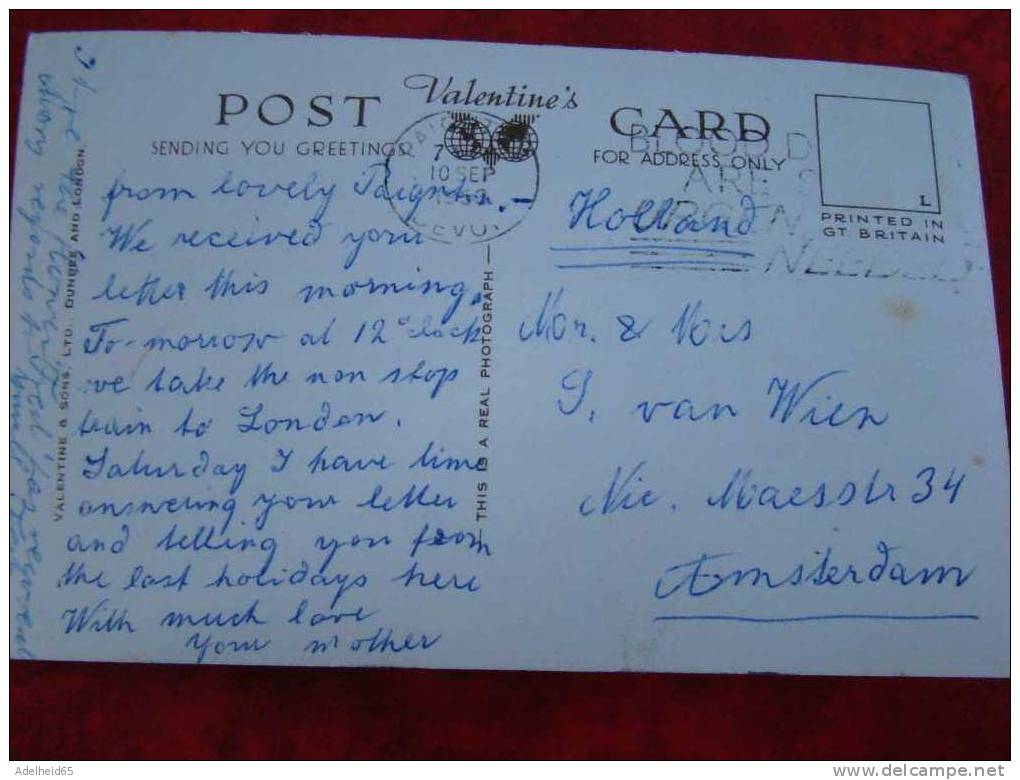 POST Valentine's CARD
SENDING YOU GREETINGS
FOR ADDRESS ONLY
10 SEP
BLOOD D
ARE
NEEDED
L
PRINTED IN
GT. BRITAIN
from lovely Paignton.-
We received your
letter this morning.
To-morrow at 12 o'clock
we take the non stop
train to London.
Saturday I have time
answering your letter
and telling you from
the last holidays here
With much love
Your mother
VALENTINE & SONS, LTD., DUNDEE AND LONDON
THIS IS A REAL PHOTOGRAPH
Holland
Mr. & Mrs
S. van Wien
Nic. Maesstr 34
Amsterdam
Adelheid65
www.delcampe.net